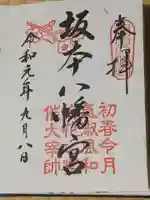 奉拝
坂本八幡宮
初春令月
氣淑風和
令和元年九月八日